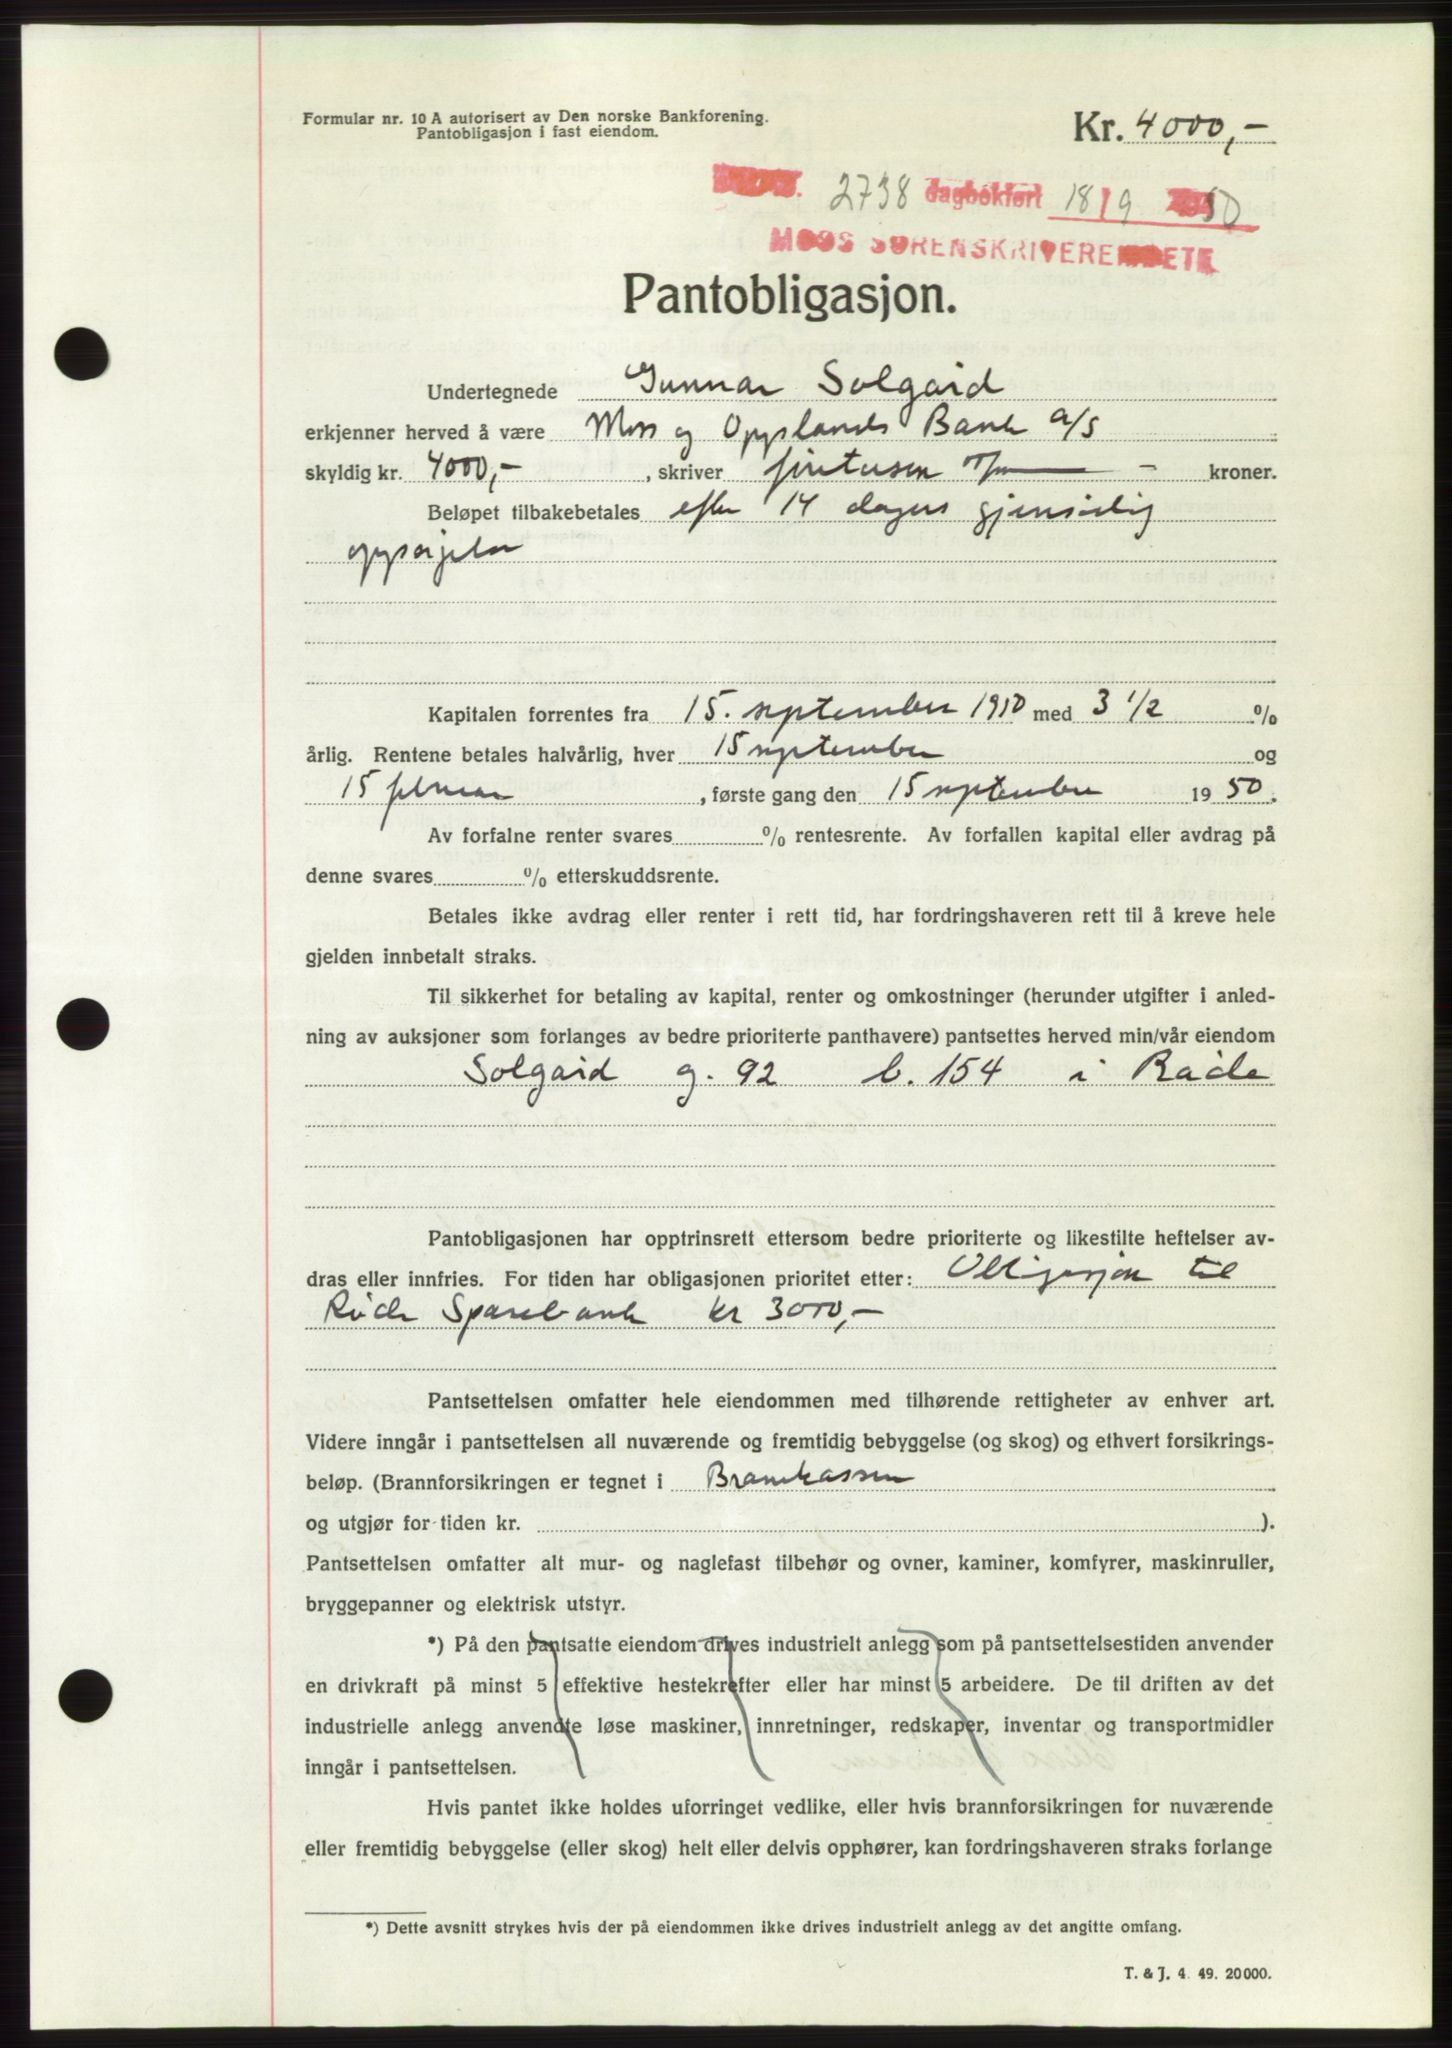 Formular nr. 10 A autorisert av Den norske Bankforening.
Pantobligasjon i fast eiendom.
Kr. 4000,-
2738 dagbokført 18/9 1950
MOSS SORENSKRIVEREMBETE
Pantobligasjon.
Undertegnede Gunnar Solgård
erkjenner herved å være Moss og Opplands Bank a/s
skyldig kr. 4000,- , skriver firetusen - kroner.
Beløpet tilbakebetales efter 14 dagers gjensidig
oppsigelse
Kapitalen forrentes fra 15. september 1950 med 3 1/2 %
årlig. Rentene betales halvårlig, hver 15 september og
15 februar , første gang den 15 september 1950.
Av forfalne renter svares % rentesrente. Av forfallen kapital eller avdrag på
denne svares % etterskuddsrente.
Betales ikke avdrag eller renter i rett tid, har fordringshaveren rett til å kreve hele
gjelden innbetalt straks.
Til sikkerhet for betaling av kapital, renter og omkostninger (herunder utgifter i anled-
ning av auksjoner som forlanges av bedre prioriterte panthavere) pantsettes herved min/vår eiendom
Solgård g. 92 b. 154 i Råde
Pantobligasjonen har opptrinsrett ettersom bedre prioriterte og likestilte heftelser av-
dras eller innfries. For tiden har obligasjonen prioritet etter: Obligasjon til
Råde Sparebank kr 3000,-
Pantsettelsen omfatter hele eiendommen med tilhørende rettigheter av enhver art.
Videre inngår i pantsettelsen all nuværende og fremtidig bebyggelse (og skog) og ethvert forsikrings-
beløp. (Brannforsikringen er tegnet i Brannkassen
og utgjør for tiden kr. ).
Pantsettelsen omfatter alt mur- og naglefast tilbehør og ovner, kaminer, komfyrer, maskinruller,
bryggepanner og elektrisk utstyr.
*) På den pantsatte eiendom drives industrielt anlegg som på pantsettelsestiden anvender
en drivkraft på minst 5 effektive hestekrefter eller har minst 5 arbeidere. De til driften av det
industrielle anlegg anvendte løse maskiner, innretninger, redskaper, inventar og transportmidler
inngår i pantsettelsen.
Hvis pantet ikke holdes uforringet vedlike, eller hvis brannforsikringen for nuværende
eller fremtidig bebyggelse (eller skog) helt eller delvis opphører, kan fordringshaveren straks forlange
*) Dette avsnitt strykes hvis der på eiendommen ikke drives industrielt anlegg av det angitte omfang.
T. & J. 4. 49. 20000.